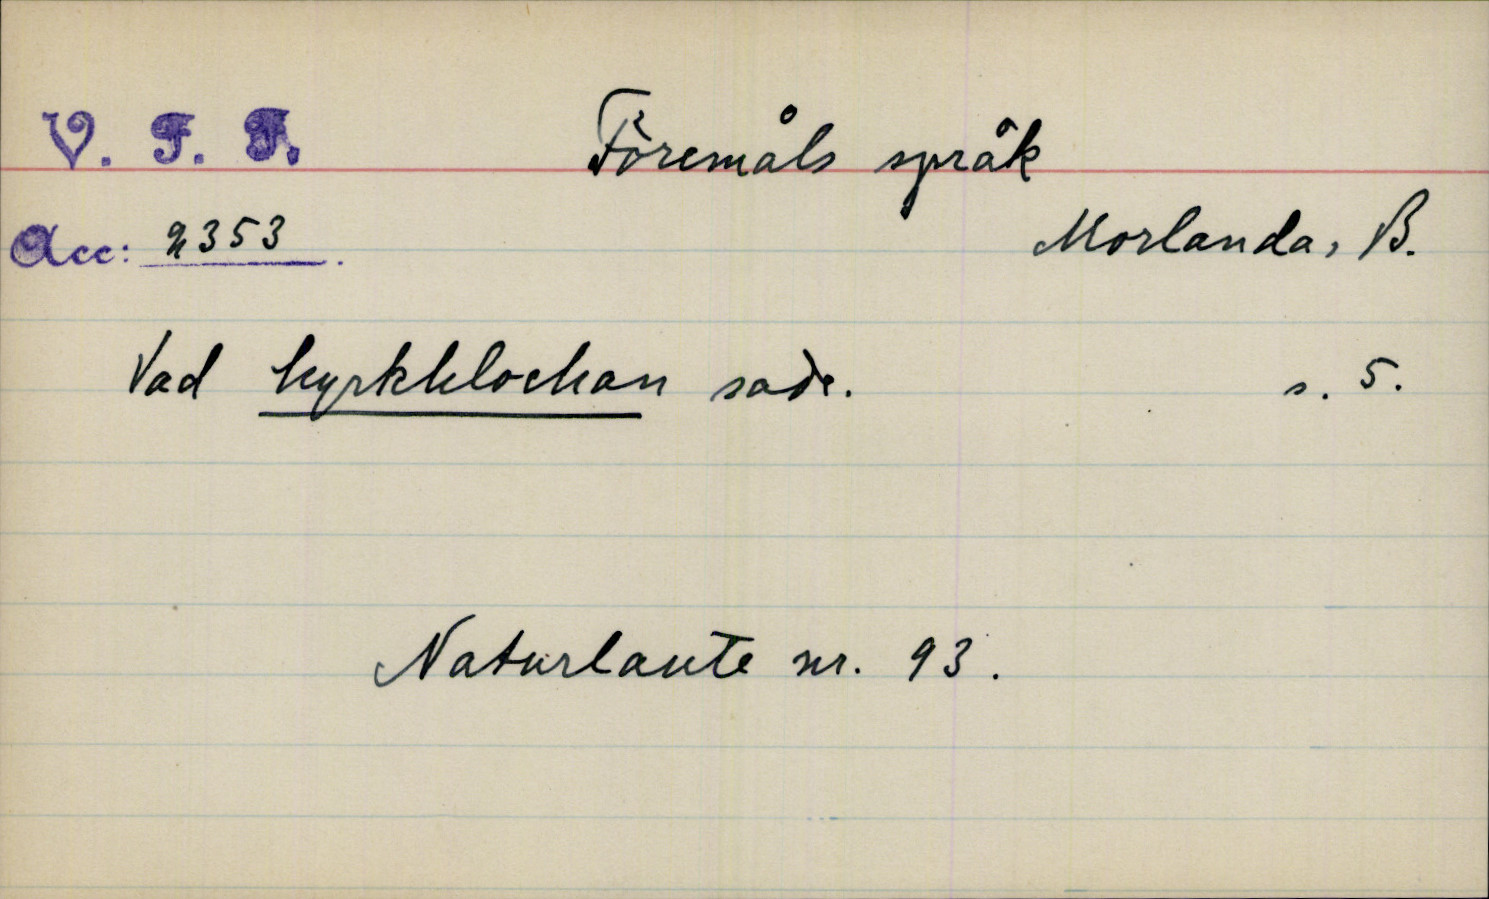 V. F. F.
Föremåls språk
Acc: 2353.
Morlanda, B.
Vad kyrkklockan sade. s. 5.
Naturlaute nr. 93.